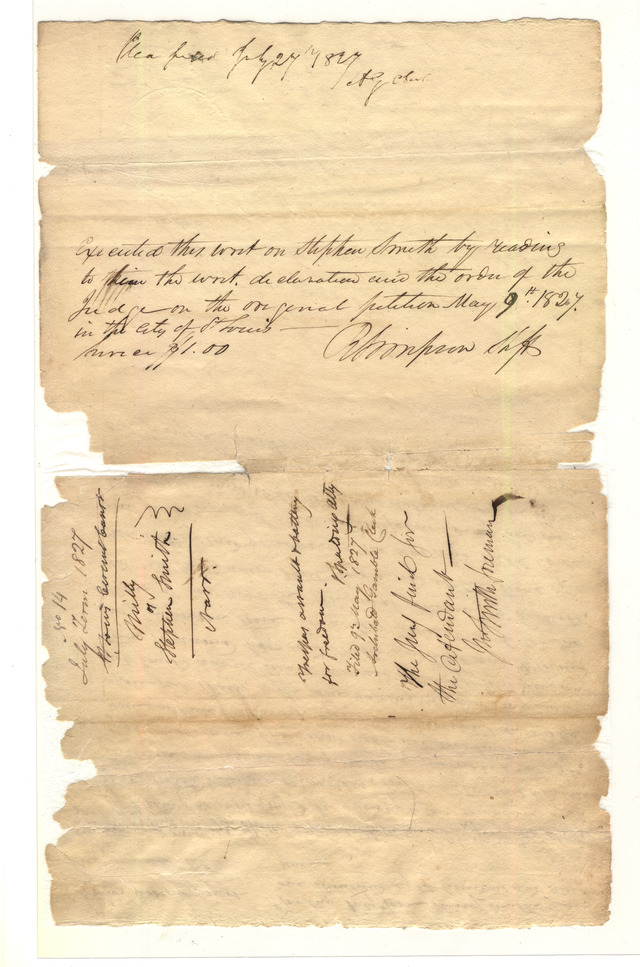 Plea filed July 27th 1827
A G Clk
Executed this writ on Stephen Smith by reading
to him the writ, declaration and the order of the
Judge on the original petition May 9th 1827.
in the City of St Louis —
Service $1.00 R Simpson Shff
No 14
July Term 1827
St Louis Circuit Court
Milly
vs
Stephen Smith
Narr.
Trespass assault & battery
for freedom. Spalding atty
Filed 9th May 1827
Archibald Gamble Clerk
The Jury find for
the defendant —
Smith foreman